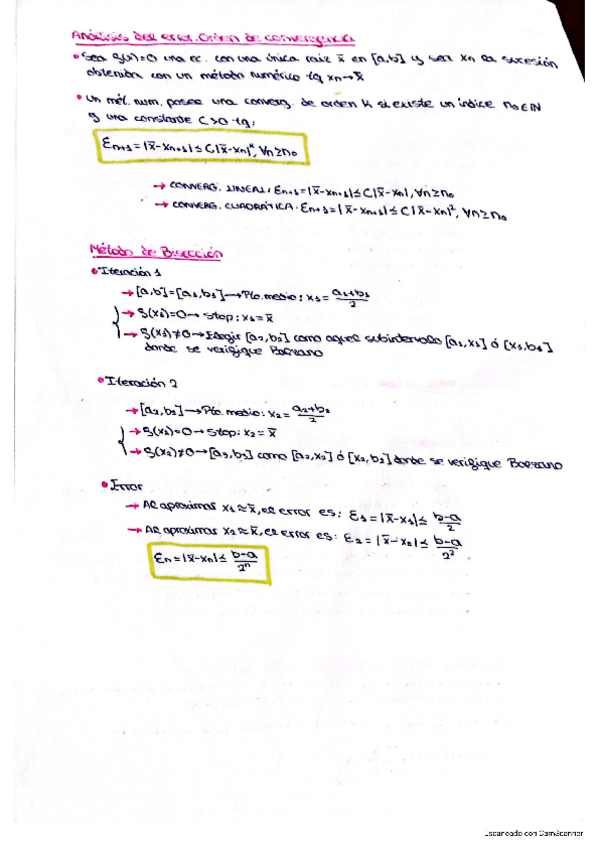 Análisis del error. Orden de convergencia
• Sea f(x)=0 una ec. con una única raíz x̄ en [a,b] y sea xn la sucesión
obtenida con un método numérico tq xn→x̄
• Un mét. num. posee una converg. de orden k si existe un índice n₀∈ℕ
y una constante C>0 tq:
Ɛn+1 = |x̄-xn+1| ≤ C|x̄-xn|ᵏ, ∀n≥n₀
→ CONVERG. LINEAL: Ɛn+1=|x̄-xn+1| ≤ C|x̄-xn|, ∀n≥n₀
→ CONVERG. CUADRÁTICA: Ɛn+1=|x̄-xn+1| ≤ C|x̄-xn|², ∀n≥n₀
Método de Bisección
• Iteración 1
→ [a,b]=[a₁,b₁] → Pto. medio: x₁ = (a₁+b₁)/2
→ f(x₁)=0 → Stop: x₁=x̄
→ f(x₁)≠0 → Elegir [a₂,b₂] como aquel subintervalo [a₁,x₁] ó [x₁,b₁]
donde se verifique Bolzano
• Iteración 2
→ [a₂,b₂] → Pto. medio: x₂ = (a₂+b₂)/2
→ f(x₂)=0 → Stop: x₂=x̄
→ f(x₂)≠0 → [a₃,b₃] como [a₂,x₂] ó [x₂,b₂] donde se verifique Bolzano
• Error
→ Al aproximar x₁≈x̄, el error es: Ɛ₁=|x̄-x₁| ≤ (b-a)/2
→ Al aproximar x₂≈x̄, el error es: Ɛ₂=|x̄-x₂| ≤ (b-a)/2²
Ɛn = |x̄-xn| ≤ (b-a)/2ⁿ
Escaneado con CamScanner